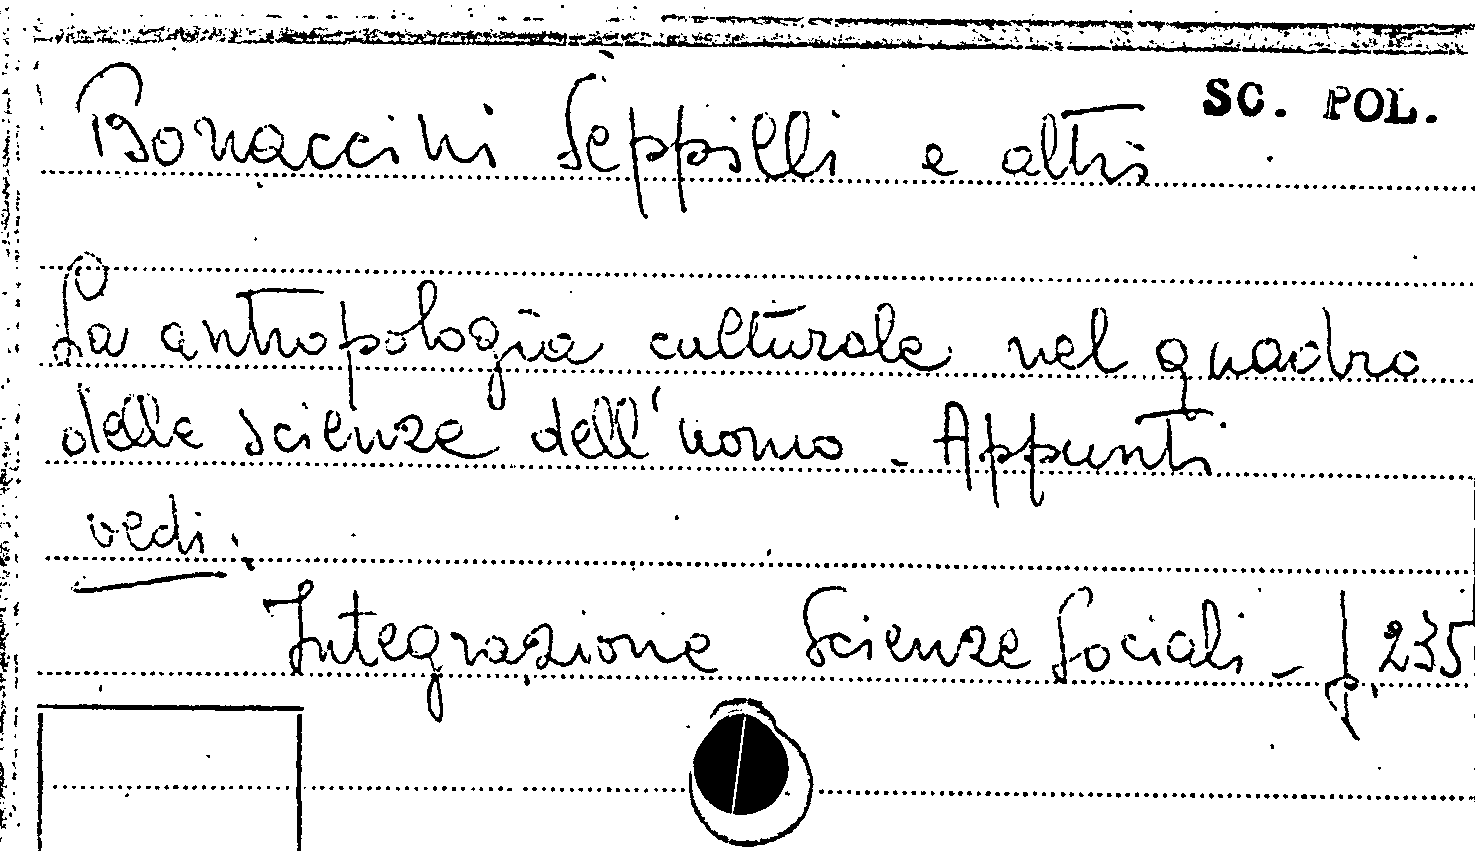 SC. POL.
Bonaccini Seppilli e altri
La antropologia culturale nel quadro
delle scienze dell'uomo - Appunti
vedi:
Integrazione Scienze Sociali - p. 235